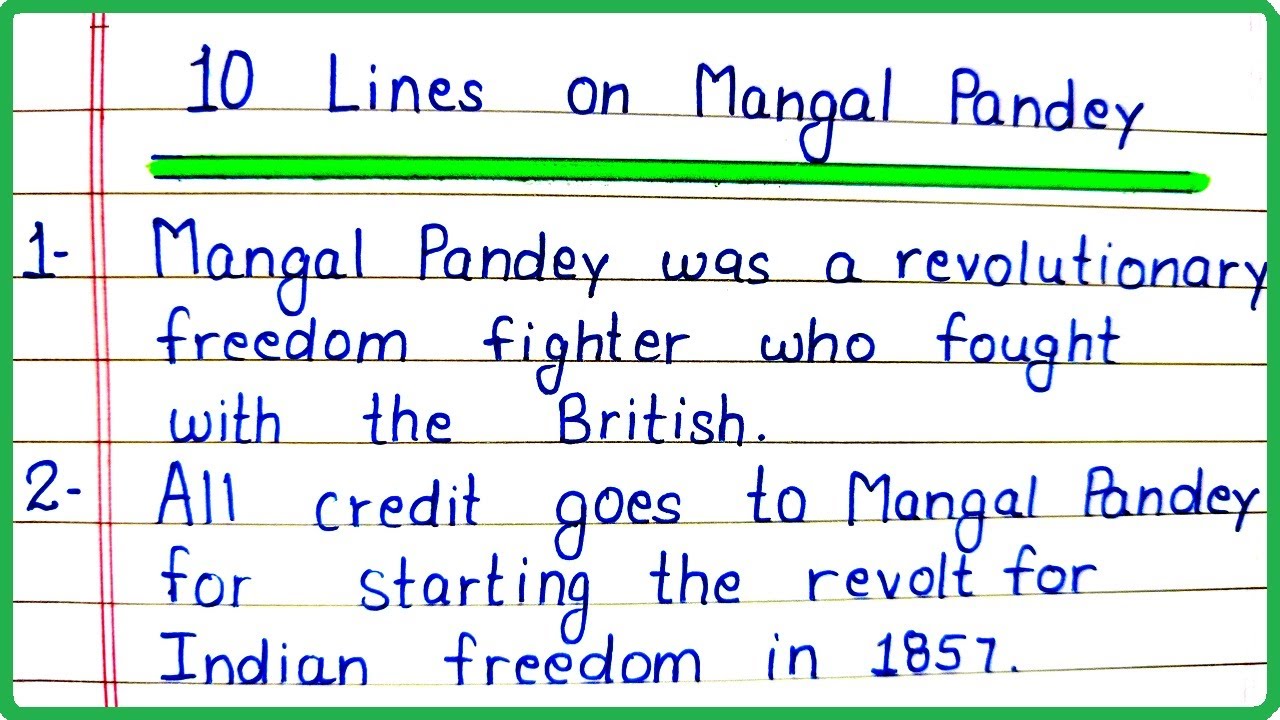 10 Lines on Mangal Pandey
1- Mangal Pandey was a revolutionary
freedom fighter who fought
with the British.
2- All credit goes to Mangal Pandey
for starting the revolt for
Indian freedom in 1857.